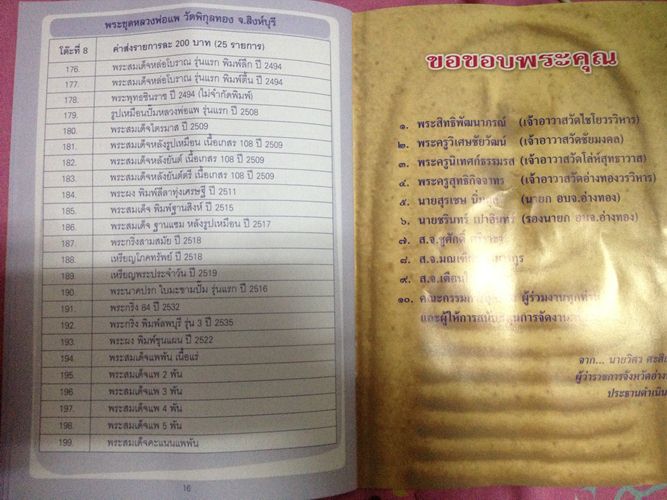 พระชุดหลวงพ่อแพ วัดพิกุลทอง จ.สิงห์บุรี
โต๊ะที่ 8 ค่าส่งรายการละ 200 บาท (25 รายการ)
176. พระสมเด็จหล่อโบราณ รุ่นแรก พิมพ์ลึก ปี 2494
177. พระสมเด็จหล่อโบราณ รุ่นแรก พิมพ์ตื้น ปี 2494
178. พระพุทธชินราช ปี 2494 (ไม่จำกัดพิมพ์)
179. รูปเหมือนปั๊มหลวงพ่อแพ รุ่นแรก ปี 2508
180. พระสมเด็จไตรมาส ปี 2509
181. พระสมเด็จหลังรูปเหมือน เนื้อเกสร 108 ปี 2509
182. พระสมเด็จหลังยันต์ เนื้อเกสร 108 ปี 2509
183. พระสมเด็จหลังยันต์ตรี เนื้อเกสร 108 ปี 2509
184. พระผง พิมพ์ลีลาทุ่งเศรษฐี ปี 2511
185. พระสมเด็จ พิมพ์ฐานสิงห์ ปี 2515
186. พระสมเด็จ ฐานแซม หลังรูปเหมือน ปี 2517
187. พระกริ่งสามสมัย ปี 2518
188. เหรียญโภคทรัพย์ ปี 2518
189. เหรียญพระประจำวัน ปี 2519
190. พระนาคปรก ใบมะขามปั๊ม รุ่นแรก ปี 2516
191. พระกริ่ง 84 ปี 2532
192. พระกริ่ง พิมพ์ลพบุรี รุ่น 3 ปี 2535
193. พระผง พิมพ์ขุนแผน ปี 2522
194. พระสมเด็จแพพัน เนื้อแร่
195. พระสมเด็จแพ 2 พัน
196. พระสมเด็จแพ 3 พัน
197. พระสมเด็จแพ 4 พัน
198. พระสมเด็จแพ 5 พัน
199. พระสมเด็จคะแนนแพพัน
16
ขอขอบพระคุณ
๑. พระสิทธิพัฒนาภรณ์ (เจ้าอาวาสวัดไชโยวรวิหาร)
๒. พระครูวิเศษชัยวัฒน์ (เจ้าอาวาสวัดชัยมงคล)
๓. พระครูนิเทศก์ธรรมรส (เจ้าอาวาสวัดโล่ห์สุทธาวาส)
๔. พระครูสุทธิกิจจาทร (เจ้าอาวาสวัดอ่างทองวรวิหาร)
๕. นายสุรเชษ (นายก อบจ.อ่างทอง)
๖. นายชรินทร์ เปาอินทร์ (รองนายก อบจ.อ่างทอง)
๗. ส.จ.ชูศักดิ์
๘. ส.จ.มณเฑียร
๙. ส.จ.เตือนใจ
๑๐. ผู้ร่วมงานทุกท่าน
และผู้ให้การสนับสนุนการจัดงาน
จาก... นายวิศว
ผู้ว่าราชการจังหวัดอ่าง
ประธานดำเนิน